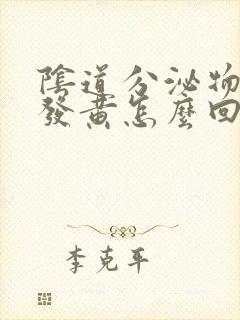 陰道分泌物
發黃怎麼回
李克平